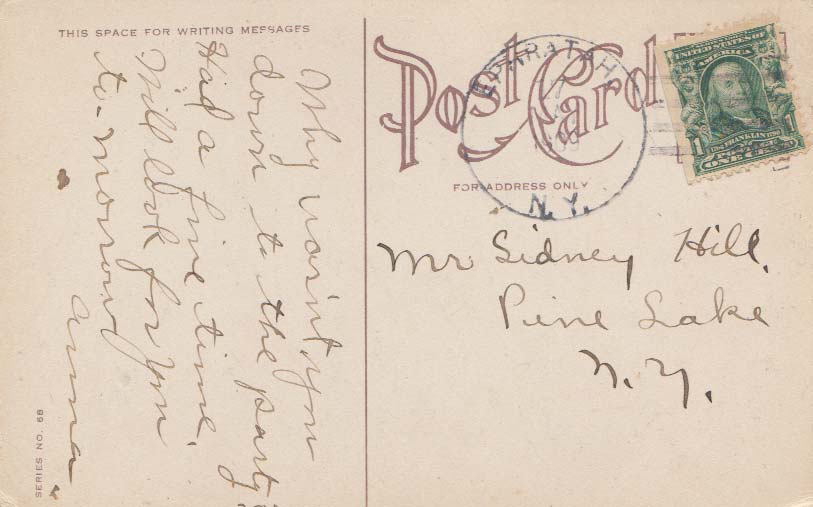 THIS SPACE FOR WRITING MESSAGES
Why wasn't you
down to the party
Had a fine time.
Will look for you
to-morrow
Anna.
SERIES NO. 68
Post Card
FOR ADDRESS ONLY
EPHRATAH
N.Y.
UNITED STATES OF
AMERICA
FRANKLIN
1 1
POSTAGE
ONE CENT
Mr Sidney Hill,
Pine Lake
N.Y.